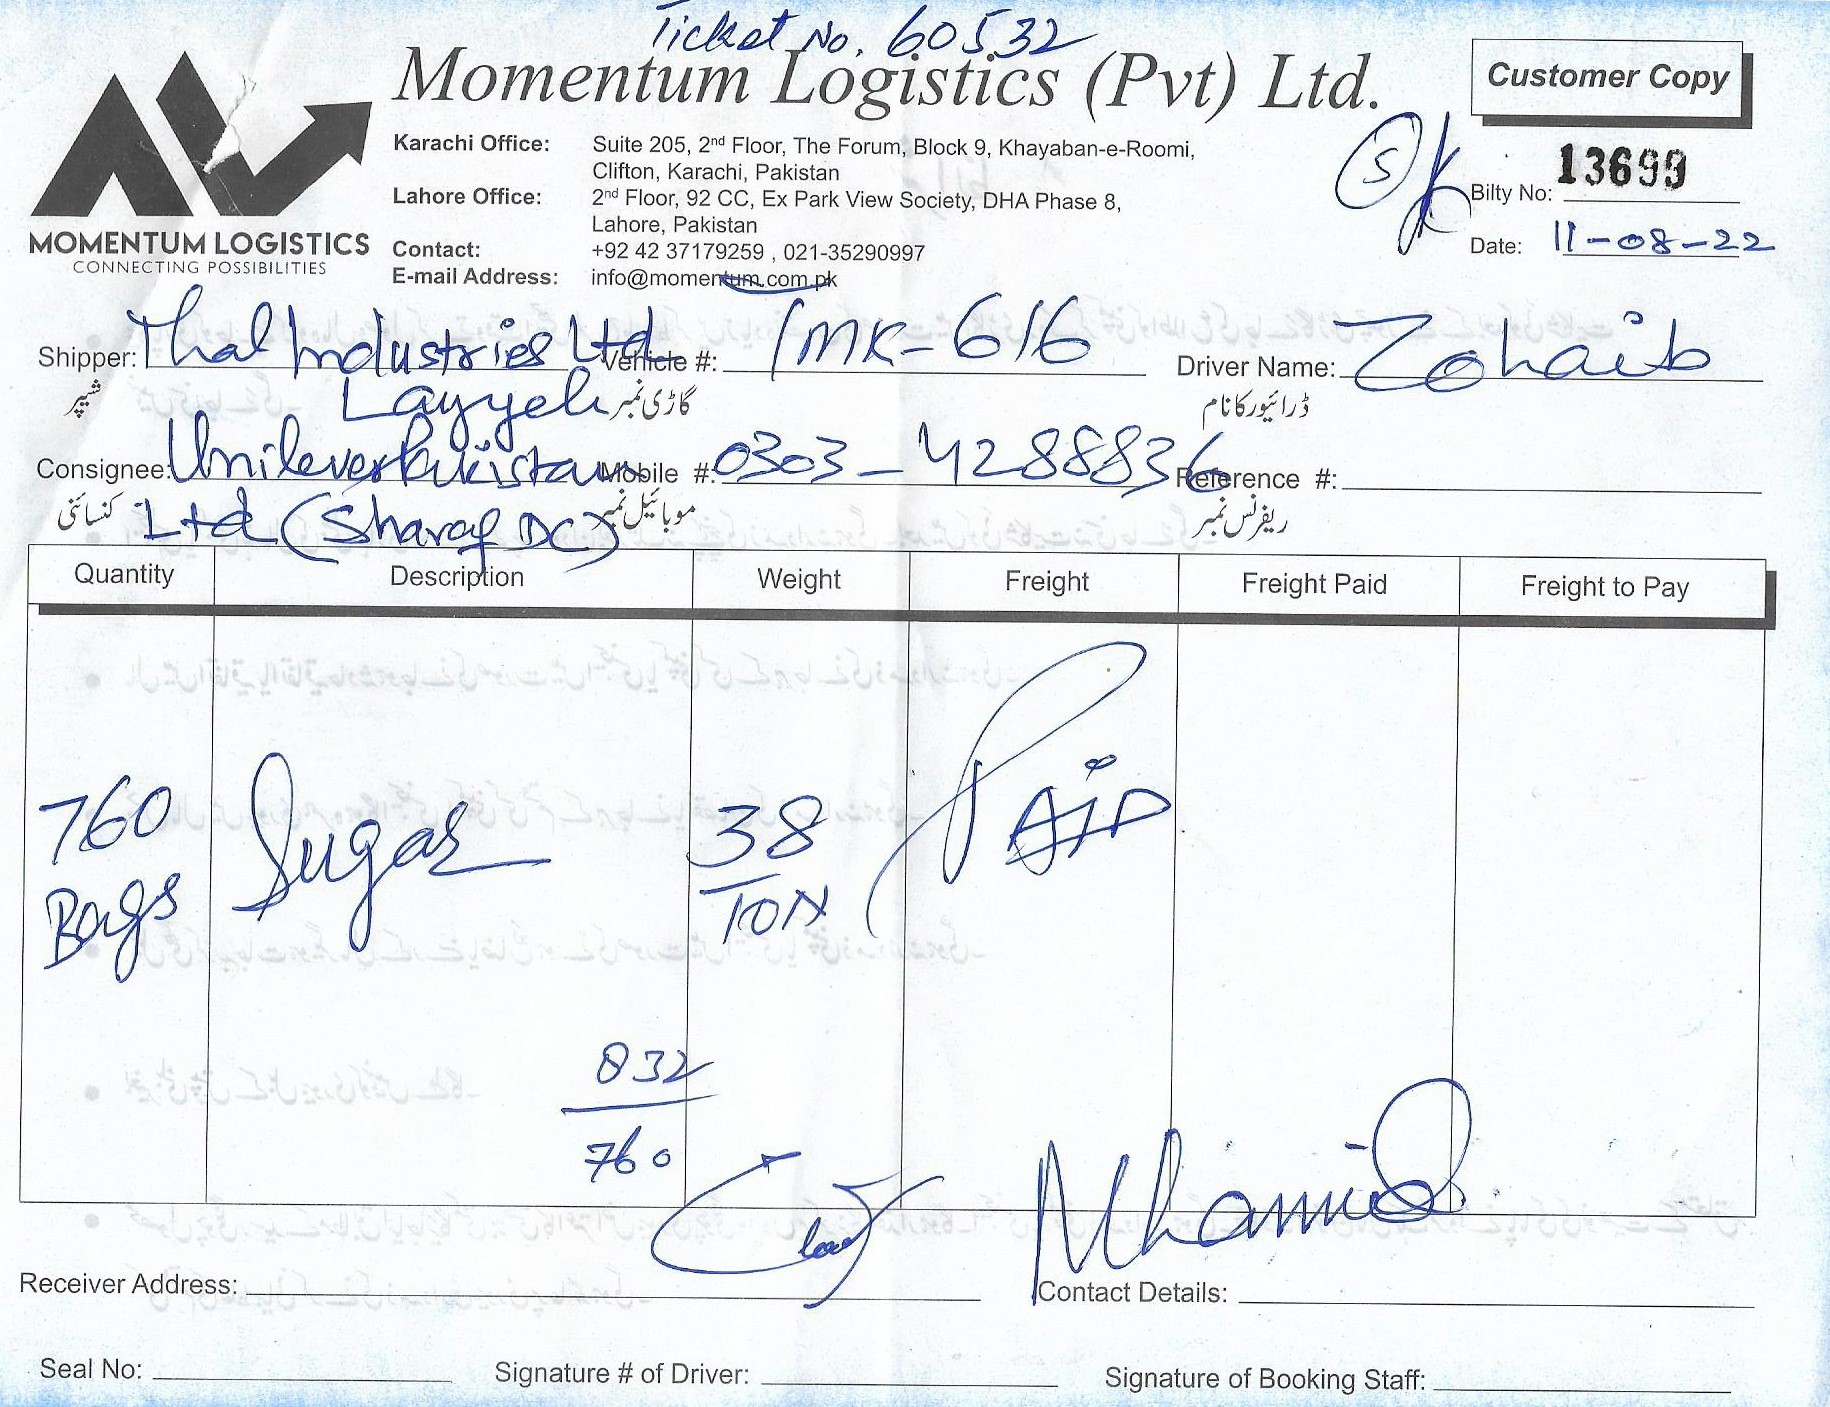 Ticket No. 60532
Momentum Logistics (Pvt) Ltd.
Customer Copy
MOMENTUM LOGISTICS
CONNECTING POSSIBILITIES
Karachi Office: Suite 205, 2nd Floor, The Forum, Block 9, Khayaban-e-Roomi,
Clifton, Karachi, Pakistan
Lahore Office: 2nd Floor, 92 CC, Ex Park View Society, DHA Phase 8,
Lahore, Pakistan
Contact: +92 42 37179259 , 021-35290997
E-mail Address: info@momentum.com.pk
S
Bilty No: 13699
Date: 11-08-22
Shipper: Thal Industries Ltd Vehicle #: TMK-616 Driver Name: Zohaib
شیپر Layyeh گاڑی نمبر ڈرائیور کا نام
Consignee: Unilever Pakistan Mobile #: 0303-4288836 Reference #:
کنسائنی Ltd (Sharaf DC) موبائیل نمبر ریفرنس نمبر
Quantity Description Weight Freight Freight Paid Freight to Pay
760 Sugar 38 PAID
Bags TON
832
760
Receiver Address: Contact Details:
Seal No: Signature # of Driver: Signature of Booking Staff: